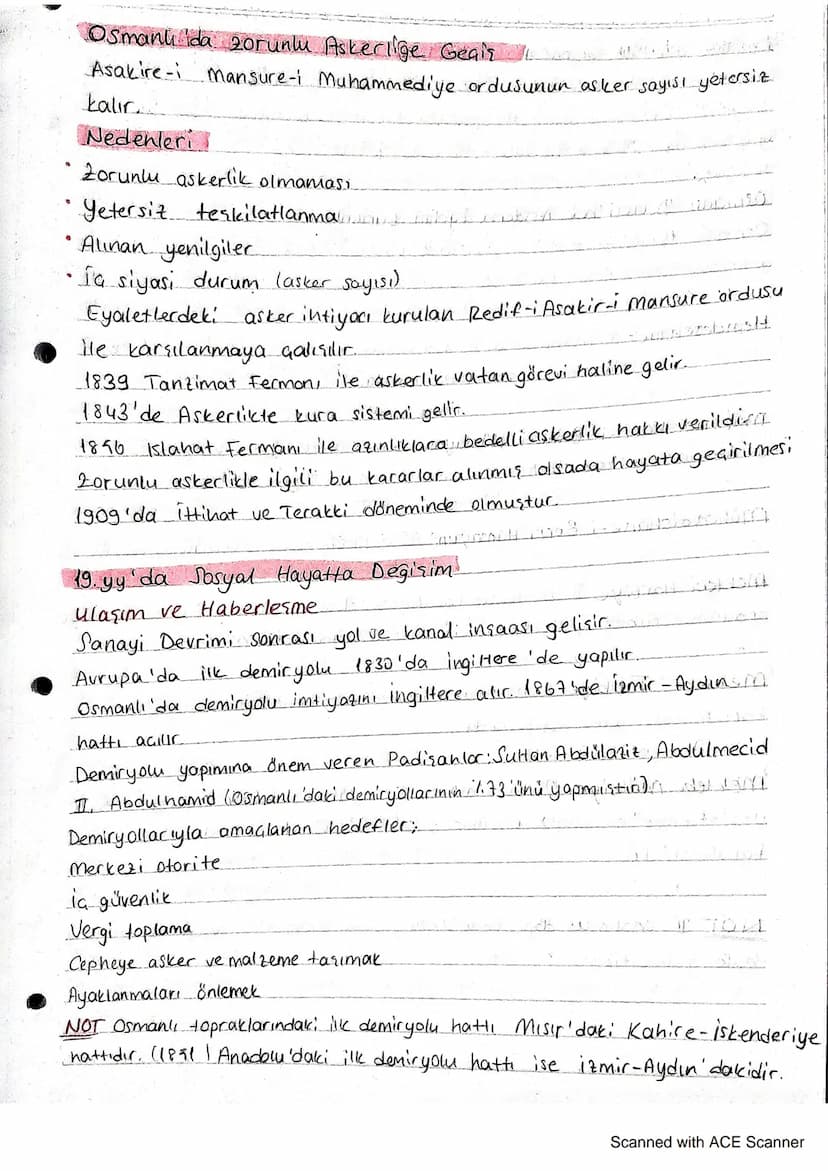 Osmanlı'da zorunlu Askerliğe Geçiş
Asakire-i Mansure-i Muhammediye ordusunun asker sayısı yetersiz
kalır.
Nedenleri
• Zorunlu askerlik olmaması
• Yetersiz teşkilatlanma
• Alınan yenilgiler
• İç siyasi durum (asker sayısı)
Eyaletlerdeki asker ihtiyacı kurulan Redif-i Asakir-i mansure ordusu
ile karşılanmaya çalışılır.
1839 Tanzimat Fermanı ile askerlik vatan görevi haline gelir.
1843'de Askerlikte kura sistemi gelir.
1856 Islahat Fermanı ile azınlıklara bedelli askerlik hakkı verildi
Zorunlu askerlikle ilgili bu kararlar alınmış olsada hayata geçirilmesi
1909'da İttihat ve Terakki döneminde olmuştur.
19.yy'da Sosyal Hayatta Değişim
Ulaşım ve Haberleşme
Sanayi Devrimi sonrası yol ve kanal inşaası gelişir.
Avrupa'da ilk demiryolu 1830'da İngiltere'de yapılır.
Osmanlı'da demiryolu imtiyazını İngiltere alır. 1867'de İzmir-Aydın
hattı açılır
Demiryolu yapımına önem veren Padişahlar: Sultan Abdülaziz, Abdülmecid
II. Abdulhamid (Osmanlı'daki demiryollarının %73'ünü yapmıştır)
Demiryollarıyla amaçlanan hedefler;
Merkezi otorite
İç güvenlik
Vergi toplama
Cepheye asker ve malzeme taşımak
Ayaklanmaları önlemek
NOT Osmanlı topraklarındaki ilk demiryolu hattı Mısır'daki Kahire-İskenderiye
hattıdır. (1851) Anadolu'daki ilk demiryolu hattı ise İzmir-Aydın'dakidir.
Scanned with ACE Scanner